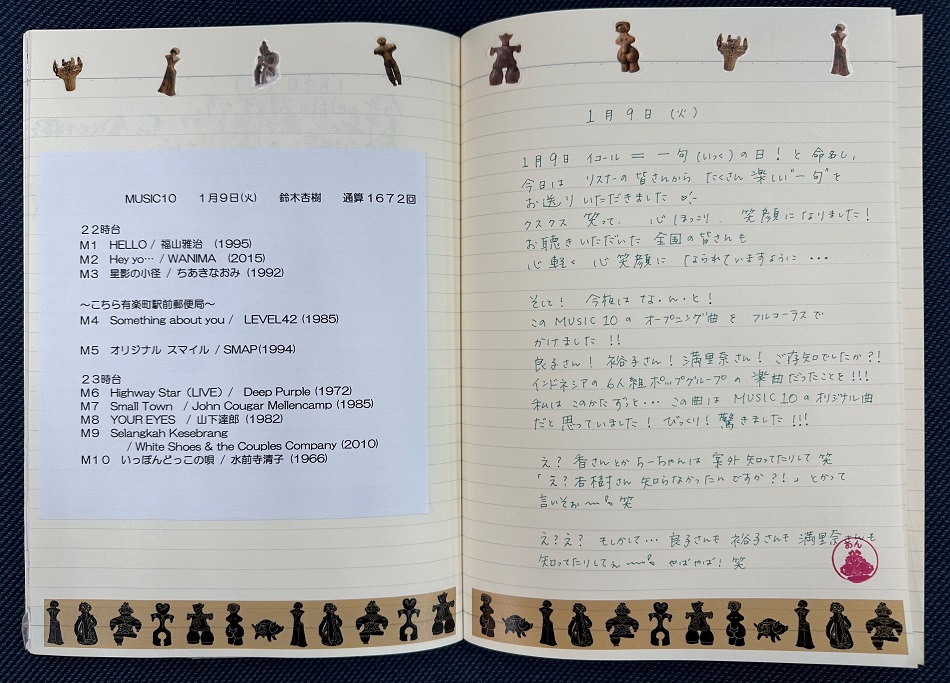 MUSIC10　１月９日(火)　鈴木杏樹　通算１６７２回
２２時台
M１　HELLO / 福山雅治　(1995)
M２　Hey yo… / WANIMA　(2015)
M３　星影の小径 / ちあきなおみ (1992)
～こちら有楽町駅前郵便局～
M４　Something about you /　LEVEL42 (1985)
M５　オリジナル スマイル / SMAP(1994)
２３時台
M６　Highway Star（LIVE）/　Deep Purple (1972)
M７　Small Town　/ John Cougar Mellencamp (1985)
M８　YOUR EYES　/ 山下達郎 (1982)
M９　Selangkah Kesebrang
/ White Shoes & the Couples Company (2010)
M１０　いっぽんどっこの唄 / 水前寺清子 (1966)
１月９日（火）
１月９日 イコール ＝ 一句（いっく）の日！と 命名し、
今日は リスナーの皆さんから たくさん楽しい"一句"を
お送りいただきました
クスクス 笑って、 心 ほっこり 、 笑顔に なりました！
お聴きいただいた 全国の皆さんも
心 軽く 心 笑顔に なられていますように ・・・
そして！ 今夜は な・ん・と！
この MUSIC 10 の オープニング曲 を フルコーラスで
かけました !!
良子さん！ 裕子さん！ 満里奈さん！ ご存知でしたか？！
インドネシアの 6人組 ポップグループ の 楽曲だったことを !!!
私は このかた ずっと・・・ この曲は MUSIC 10 のオリジナル曲
だと 思っていました！ びっくり！ 驚きました !!!
え？ 香さんとか ちーちゃんは 案外 知ってたりして 笑
「え？ 杏樹さん 知らなかったんですか？！」 とかって
言いそぉ〜 笑
え？え？ もしかして・・・ 良子さんも 裕子さんも 満里奈さんも
知ってたりしてぇ〜 やばやば！ 笑
あん